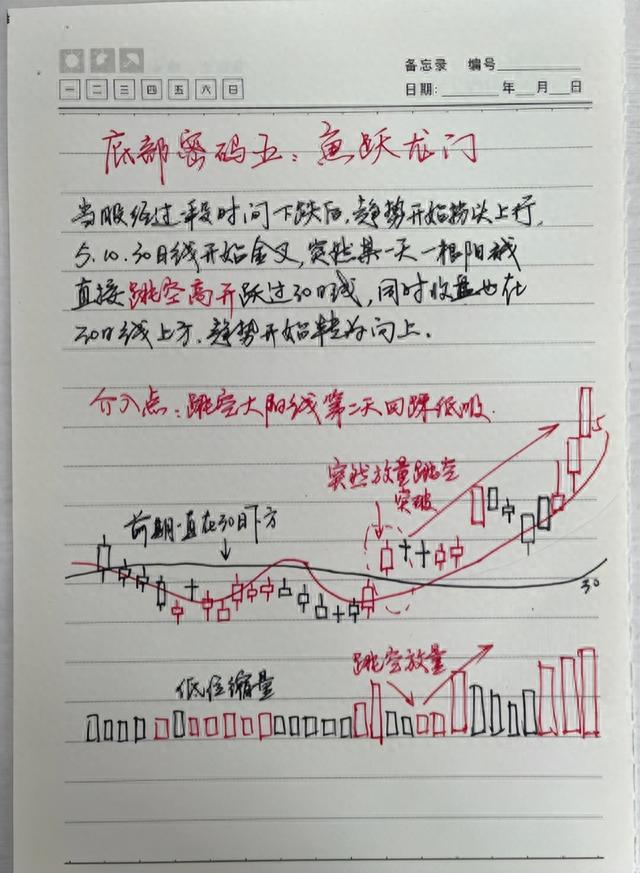 备忘录 编号
一 二 三 四 五 六 日
日期: 年 月 日
底部密码五：鱼跃龙门
当股经过一段时间下跌后，趋势开始拐头上行，
5.10.30日线开始金叉，突然某一天一根阳线
直接跳空高开跃过30日线，同时收盘也在
30日线上方，趋势开始转为向上。
介入点：跳空大阳线第二天回踩低吸.
突然放量跳空
突破
前期一直在30日下方
5
30
跳空放量
低位缩量